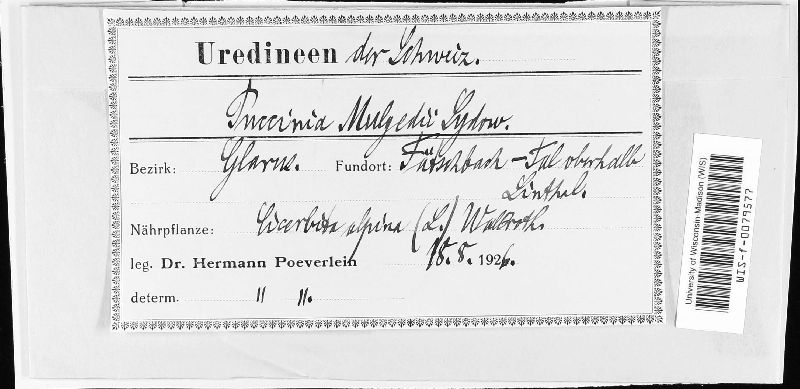 Uredineen der Schweiz.
Puccinia Mulgedii Sydow.
Bezirk: Glarus. Fundort: Fätschbach-Tal oberhalb
Linthal.
Nährpflanze: Cicerbita alpina (L.) Wallroth.
leg. Dr. Hermann Poeverlein 18.8.1926.
determ. " ".
University of Wisconsin-Madison (WIS)
WIS-f-0079577